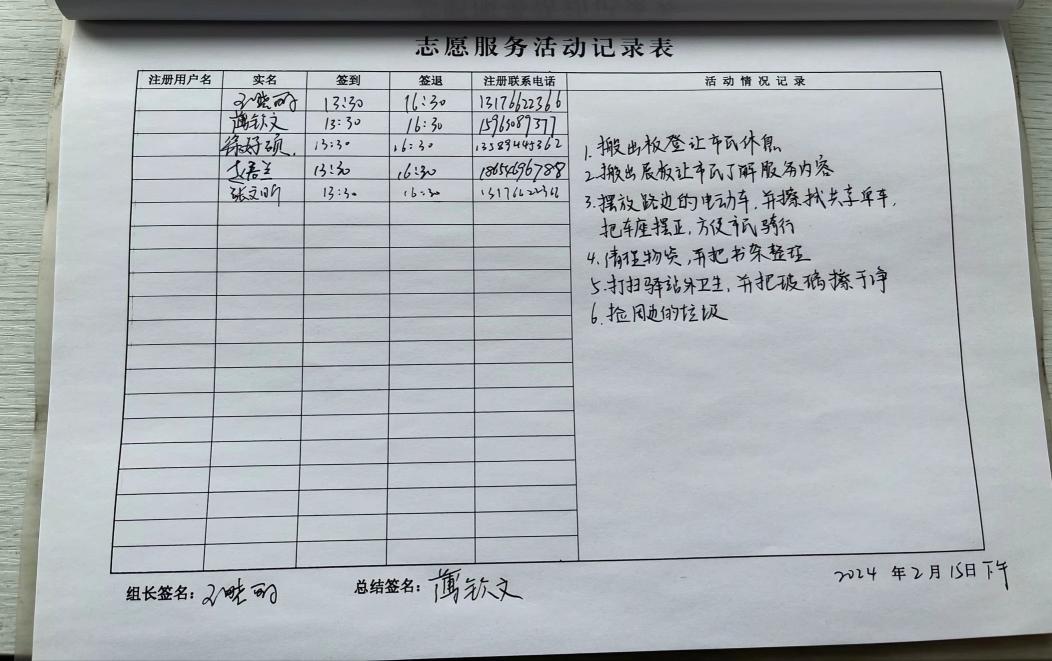 志愿服务活动记录表
注册用户名 实名 签到 签退 注册联系电话 活动情况记录
13:30 16:30 13176622366
蔺钦文 13:30 16:30 15965089377
徐好硕 13:30 16:30 13589445362
13:30 16:30 18654696788
张文昕 13:30 16:30 13176622366
1. 搬出板登让市民休息
2. 搬出展板让市民了解服务内容
3. 摆放路边的电动车,并擦拭共享单车,
把车座摆正,方便市民骑行
4. 清理物资,并把书架整理
5. 打扫驿站外卫生,并把玻璃擦干净
6. 捡周边的垃圾
组长签名: 总结签名:蔺钦文 2024 年 2 月 15 日下午